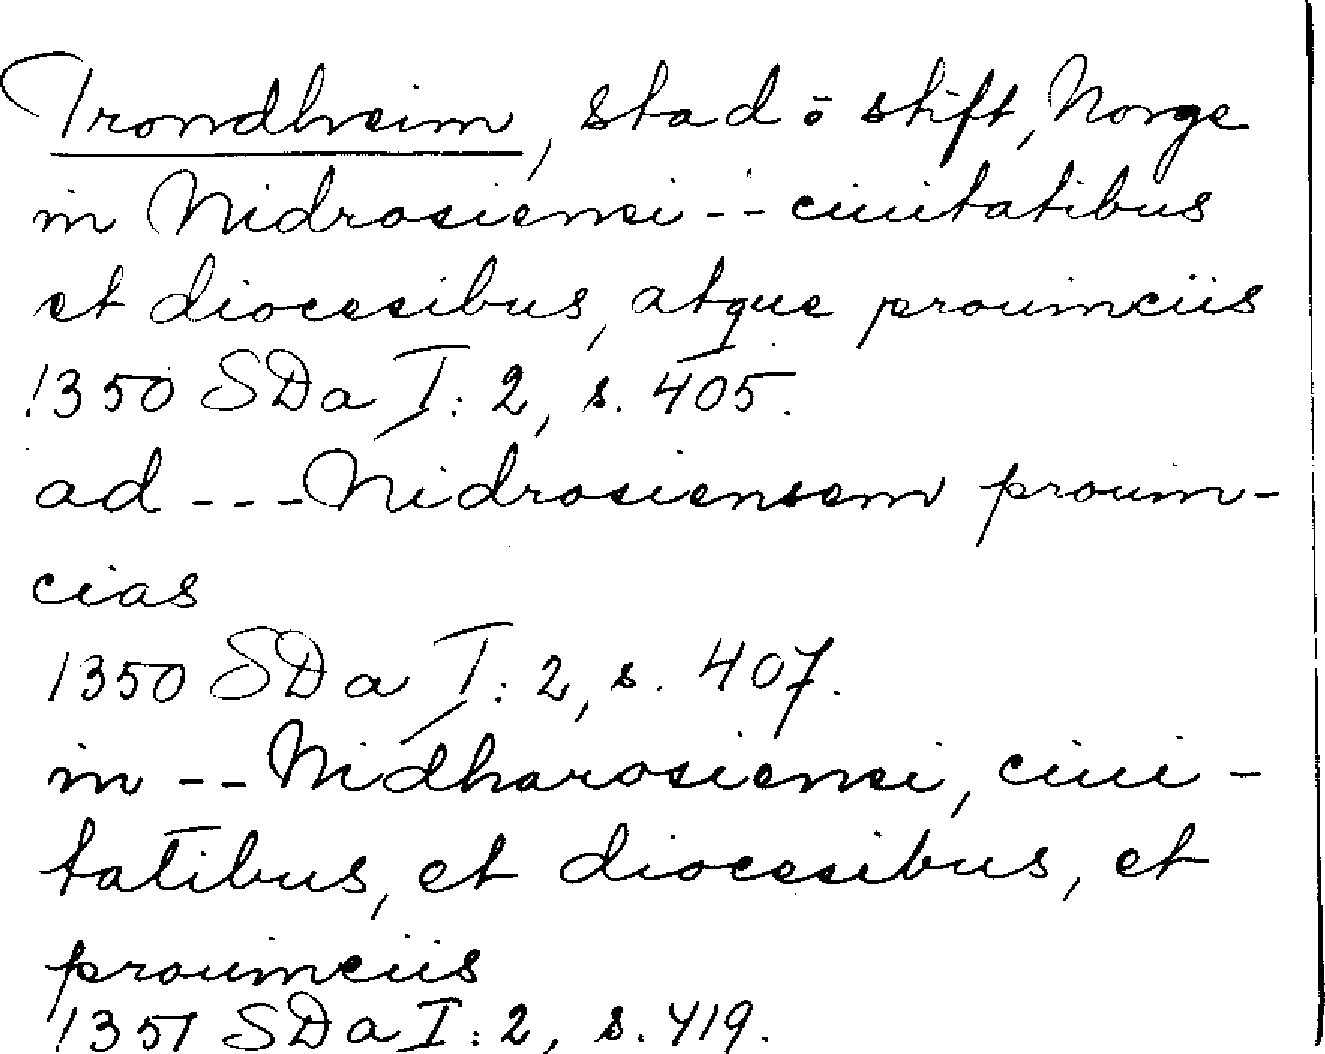 Trondheim, stad o stift, Norge
in Nidrosiensi -- ciuitatibus
et diocesibus, atque prouinciis
1350 SDa I:2, s. 405.
ad --- Nidrosiensem prouin-
cias
1350 SDa I:2, s. 407.
in -- Nidharosiensi, ciui-
tatibus, et diocesibus, et
prouinciis
1351 SDa I:2, s. 419.